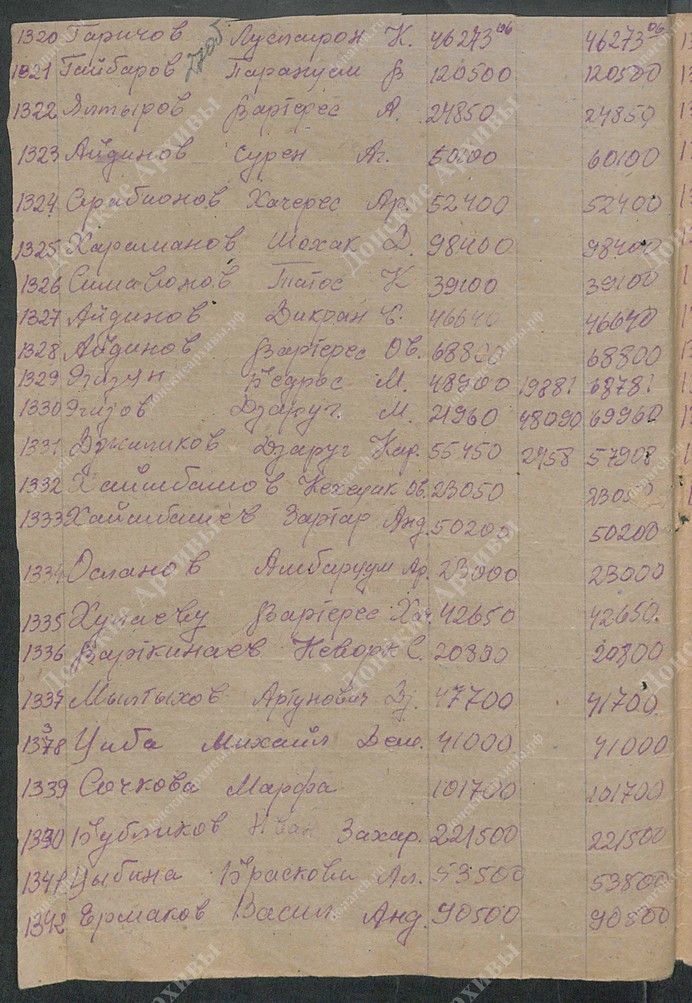 1320 Гаричов К. 46273 06 46273 06
1321 Гайбаров Парануш В 120500 120500
1322 Ялтыров Вартерес А. 24850 24850
1323 Айдинов Сурен Аг. 60100
1324 Срабионов Хачерес Ар. 52400 52400
1325 Хараманов Шохак Д. 98400 98400
1326 Симавонов Татос К 39100 39100
1327 Айдинов Дикран 46640 46640
1328 Айдинов Вартерес Ов. 68800 68800
1329 Бедрос М. 48900 19881 68781
1330 Ягизов Дзаруг М. 21960 48090 69960
1331 Джиликов Дзаруг Кар. 55450 2458 57908
1332 Хайлибашов Ов. 23050 23050
1333 Зартар Анд. 50200 50200
1334 Осланов Амбарцум Ар. 23000 23000
1335 Вартерес Хач. 42650 42650
1336 Варткинаев Кеворк С. 20800 20800
1337 Мылтыхов Артунович 47700 41700
1338 Циба Михаил Дем. 41000 41000
1339 Сочкова Марфа 101700 101700
Бубликов Иван Захар. 221500 221500
1341 Цыбина Прасковьи Ал. 53500 53800
1342 Ермаков Васил Анд. 90500 90500
Донские Архивы